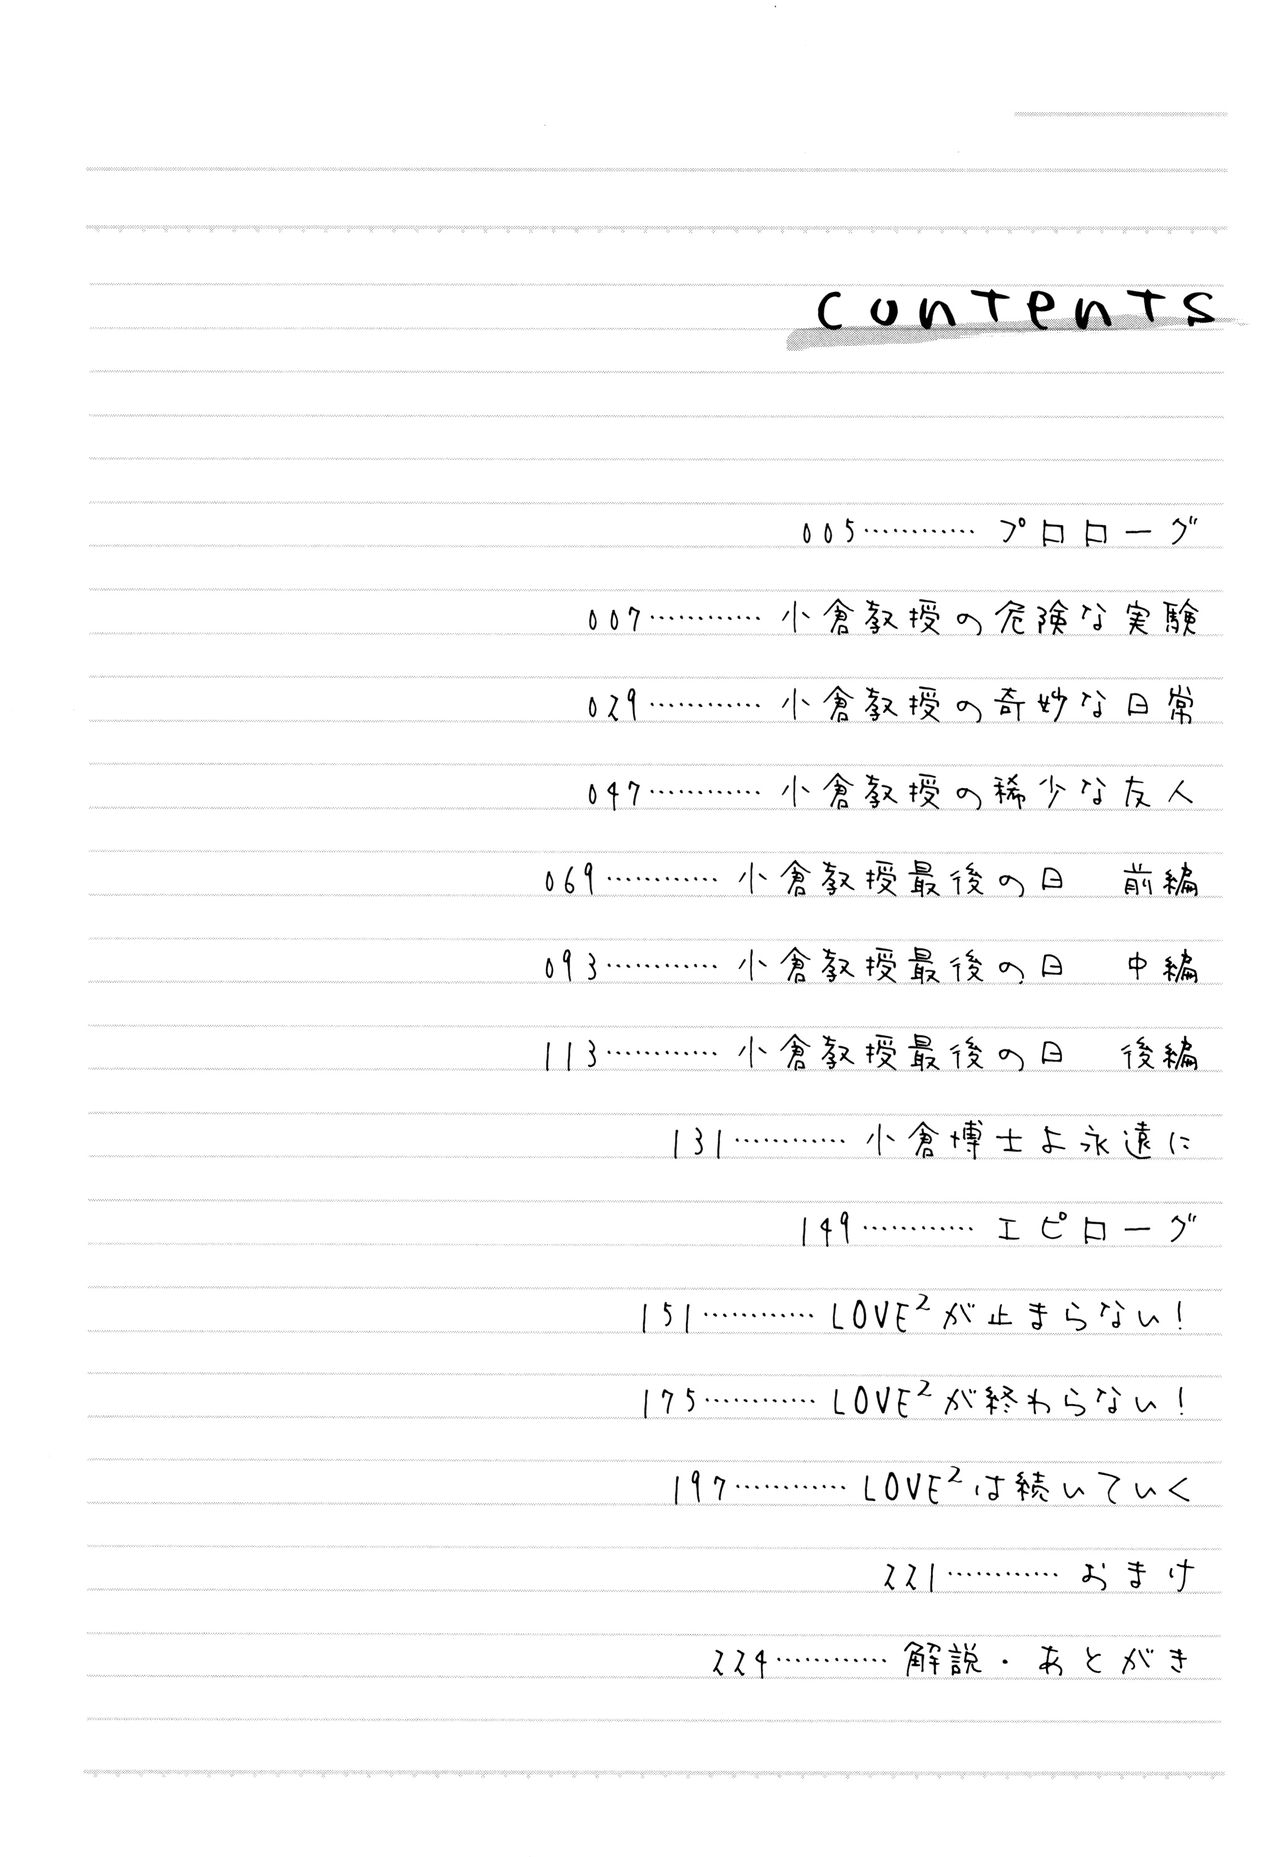 contents
005…………プロローグ
007…………小倉教授の危険な実験
029…………小倉教授の奇妙な日常
047…………小倉教授の稀少な友人
069…………小倉教授最後の日　前編
093…………小倉教授最後の日　中編
113…………小倉教授最後の日　後編
131…………小倉博士よ永遠に
149…………エピローグ
151…………LOVE²が止まらない!
175…………LOVE²が終わらない!
197…………LOVE²は続いていく
221…………おまけ
224…………解説・あとがき